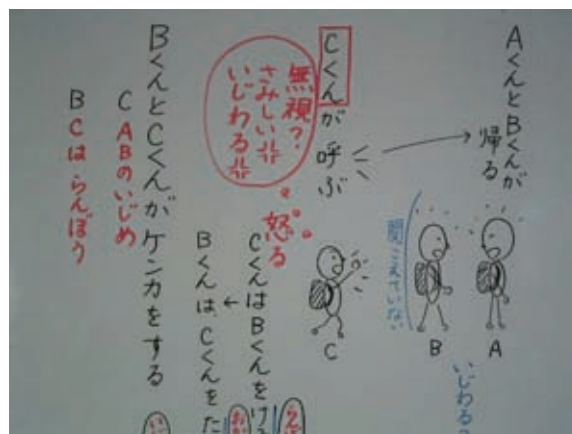 AくんとBくんが
帰る
A
B
聞こえていない
いじわる
Cくんが呼ぶ
C
無視?
さみしい
いじわる
怒る
CくんはBくんをけ
Bくんは、Cくんをた
BくんとCくんがケンカをする
C ABのいじめ
B Cはらんぼう